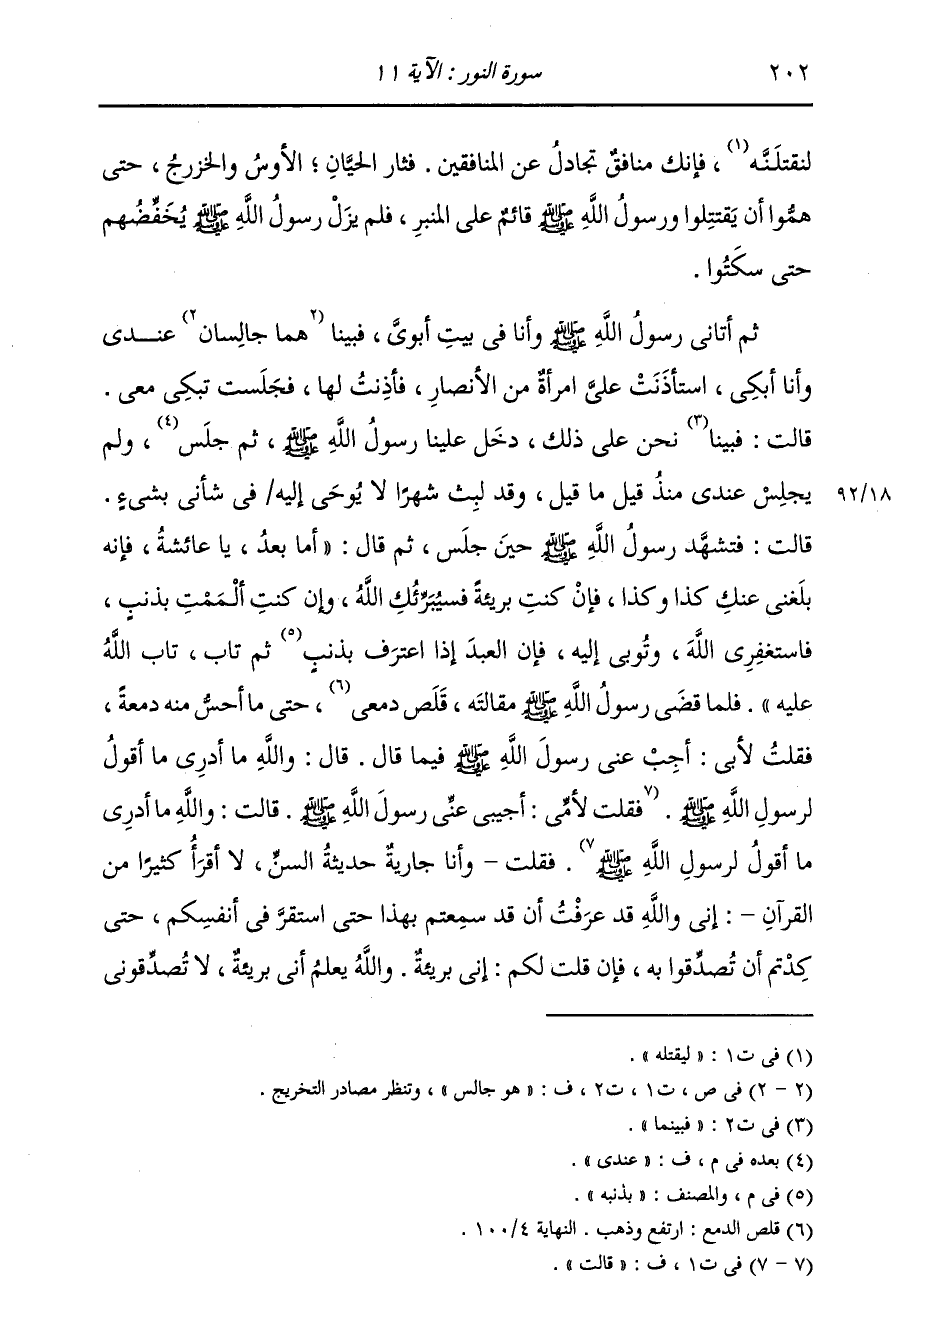 ٢٠٢ سورة النور : الآية ١١
لنقتلَنَّه(١) ، فإنك منافقٌ تجادلُ عن المنافقين . فثار الحيَّانِ ؛ الأوسُ والخزرجُ ، حتى
همُّوا أن يَقتتِلوا ورسولُ اللَّهِ ﷺ قائمٌ على المنبرِ ، فلم يزَلْ رسولُ اللَّهِ ﷺ يُخَفِّضُهم
حتى سكَتُوا .
ثم أتانى رسولُ اللَّهِ ﷺ وأنا فى بيتِ أبوىَّ ، فبينا (٢هما جالِسان٢) عنـدى
وأنا أبكِى ، استأذَنَتْ علىَّ امرأةٌ من الأنصارِ ، فأذِنتُ لها ، فجَلَست تبكِى معى .
قالت : فبينا(٣) نحن على ذلك ، دخَل علينا رسولُ اللَّهِ ﷺ ، ثم جلَس(٤) ، ولم
يجلِسْ عندى منذُ قيل ما قيل ، وقد لبِث شهرًا لا يُوحَى إليه/ فى شأنى بشىءٍ . ٩٢/١٨
قالت : فتشهَّد رسولُ اللَّهِ ﷺ حينَ جلَس ، ثم قال : « أما بعدُ ، يا عائشةُ ، فإنه
بلَغنى عنكِ كذا وكذا ، فإنْ كنتِ بريئةً فسيُبَرِّئُكِ اللَّهُ ، وإن كنتِ ألْمَمْتِ بذنبٍ ،
فاستغفِرِى اللَّهَ ، وتُوبى إليه ، فإن العبدَ إذا اعترَف بذنبٍ(٥) ثم تاب ، تاب اللَّهُ
عليه » . فلما قضَى رسولُ اللَّهِ ﷺ مقالتَه ، قَلَص دمعى(٦) ، حتى ما أحسُّ منه دمعةً ،
فقلتُ لأبى : أجِبْ عنى رسولَ اللَّهِ ﷺ فيما قال . قال : واللَّهِ ما أدرِى ما أقولُ
لرسولِ اللَّهِ ﷺ . (٧فقلت لأمِّى : أجيبى عنِّى رسولَ اللَّهِ ﷺ . قالت : واللَّهِ ما أدرِى
ما أقولُ لرسولِ اللَّهِ ﷺ٧) . فقلت – وأنا جاريةٌ حديثةُ السنِّ ، لا أقرَأُ كثيرًا من
القرآنِ – : إنى واللَّهِ قد عرَفْتُ أن قد سمِعتم بهذا حتى استقرَّ فى أنفسِكم ، حتى
كِدْتم أن تُصدِّقوا به ، فإن قلت لكم : إنى بريئةٌ . واللَّهُ يعلمُ أنى بريئةٌ ، لا تُصدِّقونى
(١) فى ت١ : « ليقتله » .
(٢ – ٢) فى ص ، ت١ ، ت٢ ، ف : « هو جالس » ، وتنظر مصادر التخريج .
(٣) فى ت٢ : « فبينما » .
(٤) بعده فى م ، ف : « عندى » .
(٥) فى م ، والمصنف : « بذنبه » .
(٦) قلص الدمع : ارتفع وذهب . النهاية ١٠٠/٤ .
(٧ – ٧) فى ت١ ، ف : « قالت » .